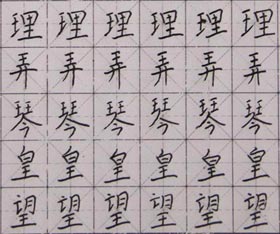 理理理理理理
弄弄弄弄弄弄
琴琴琴琴琴琴
皇皇皇皇皇皇
望望望望望望